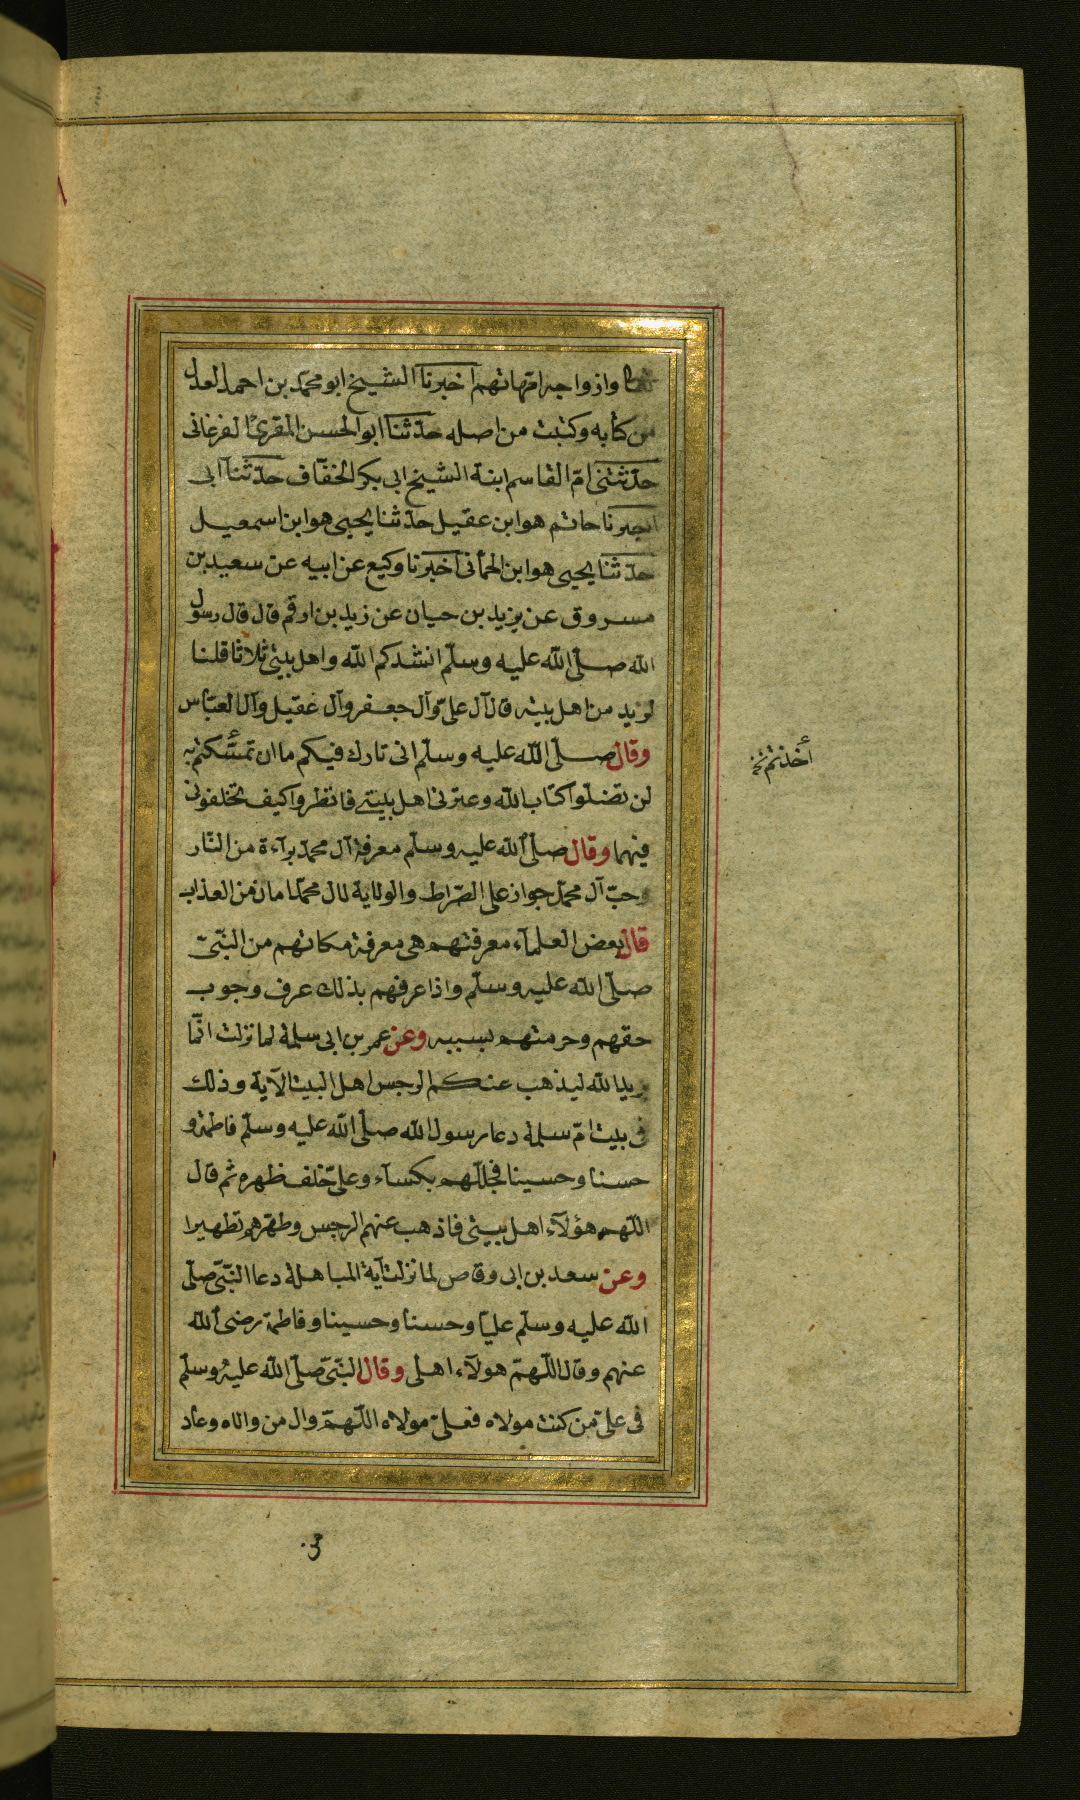 وازواجه امهاتهم اخبرنا الشيخ ابو محمّد بن احمد العدل
من كتابه وكتبت من اصله حدّثنا ابو الحسن المقرئ الفرغانى
حدّثتنى امّ القاسم ابنة الشيخ ابى بكر الخفّاف حدّثنا ابى
اخبرنا حاتم هو ابن عقيل حدّثنا يحيى هو ابن اسمعيل
حدّثنا يحيى هو ابن الحمّانى اخبرنا وكيع عن ابيه عن سعيد بن
مسروق عن يزيد بن حيان عن زيد بن ارقم قال قال رسول
الله صلّى الله عليه وسلّم انشدكم الله واهل بيتى ثلاثا قلنا
لزيد من اهل بيته قال آل علىّ وآل جعفر وآل عقيل وآل العبّاس
وقال صلّى الله عليه وسلّم انى تارك فيكم ما ان تمسّكتم به
لن تضلّوا كتاب الله وعترتى اهل بيتى فانظروا كيف تخلفونى
فيهما وقال صلّى الله عليه وسلّم معرفة آل محمّد برآءة من النّار
وحبّ آل محمّد جواز على الصّراط والولاية لال محمّد امان من العذاب
قال بعض العلمآء معرفتهم هى معرفة مكانهم من النّبىّ
صلّى الله عليه وسلّم واذا عرفهم بذلك عرف وجوب
حقهم وحرمتهم بسببه وعن عمر بن ابى سلمة لما نزلت انّما
يريد الله ليذهب عنكم الرجس اهل البيت الآية وذلك
فى بيت امّ سلمة دعا رسول الله صلّى الله عليه وسلّم فاطمة و
حسنا وحسينا فجلّلهم بكسآء وعلىّ خلف ظهره ثم قال
اللّهم هؤلآء اهل بيتى فاذهب عنهم الرجس وطهّرهم تطهيرا
وعن سعد بن ابى وقاص لما نزلت آية المباهلة دعا النّبىّ صلّى
الله عليه وسلّم عليّا وحسنا وحسينا وفاطمة رضى الله
عنهم وقال اللّهمّ هولآء اهلى وقال النّبىّ صلّى الله عليه وسلّم
فى علىّ من كنت مولاه فعلىّ مولاه اللّهمّ وال من والاه وعاد
أخذتم نخ
من